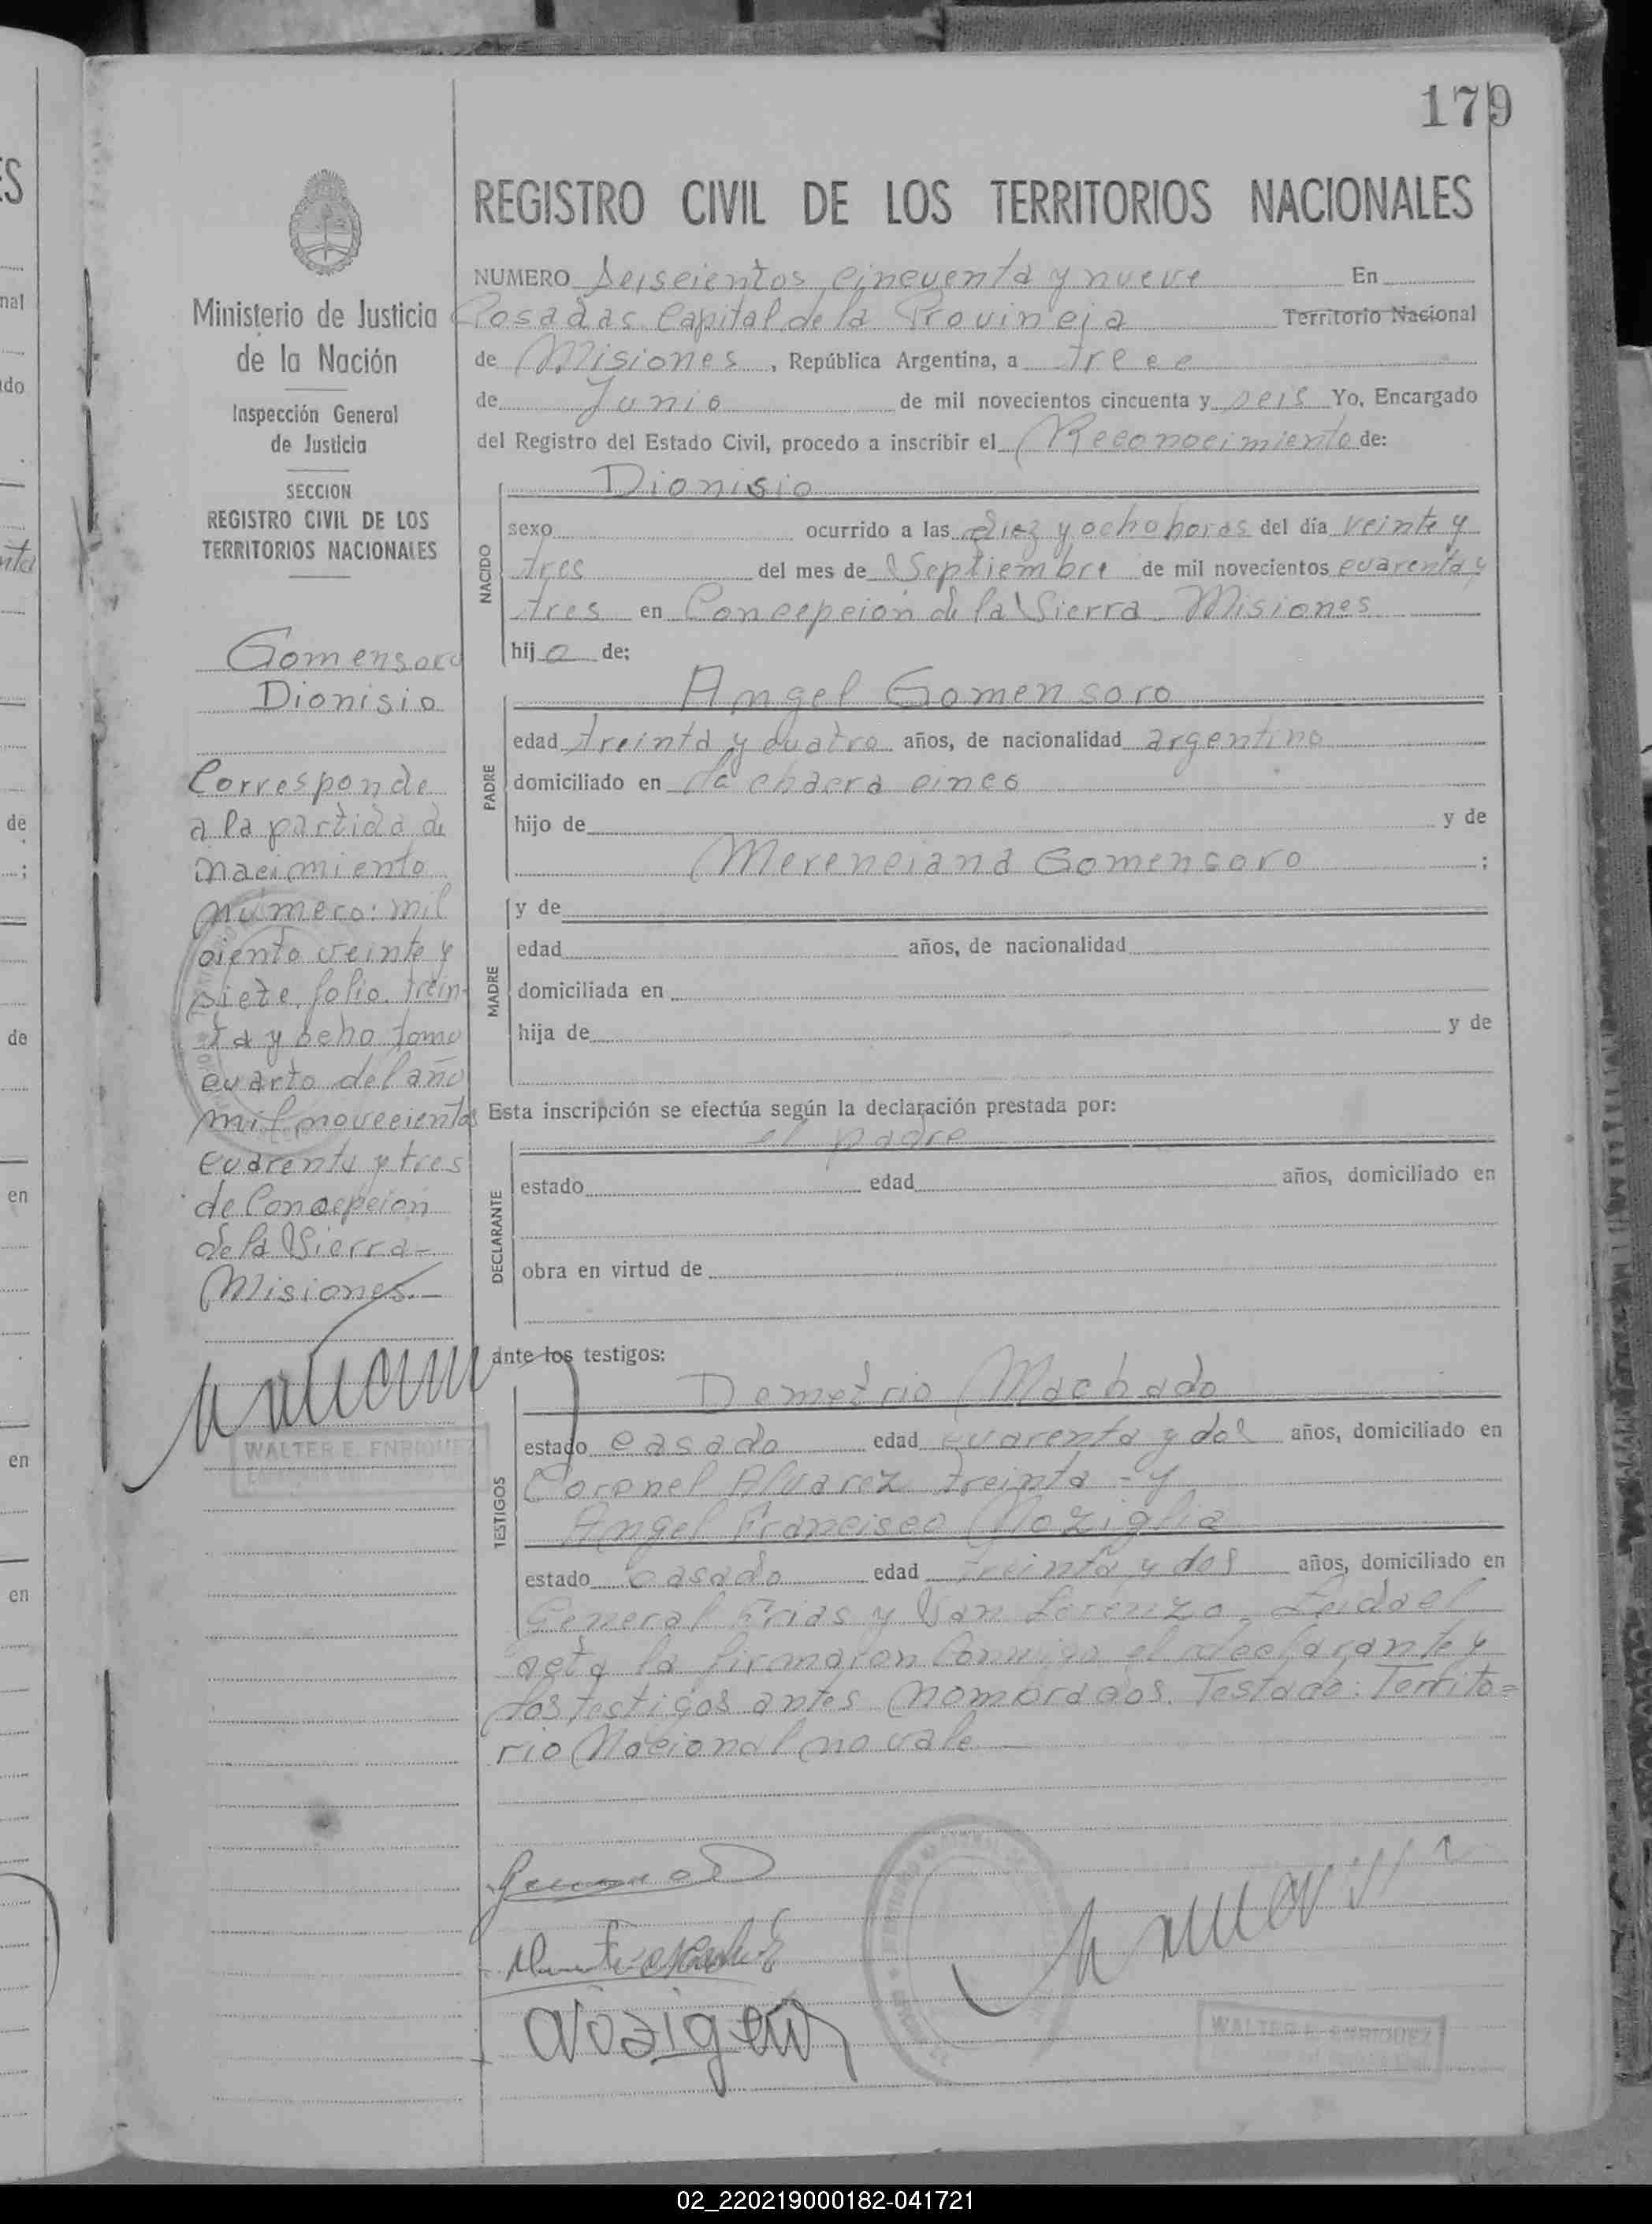 179
REGISTRO CIVIL DE LOS TERRITORIOS NACIONALES
Ministerio de Justicia
de la Nación
Inspección General
de Justicia
SECCION
REGISTRO CIVIL DE LOS
TERRITORIOS NACIONALES
Gomensoro
Dionisio
Corresponde
a la partida de
nacimiento
número: mil
ciento veinte y
siete, folio trein-
ta y ocho tomo
cuarto del año
mil novecientos
cuarenta y tres
de Concepcion
de la Sierra-
Misiones.-
WALTER E. ENRIQUEZ
NUMERO Seiscientos cincuenta y nueve En
Posadas Capital de la Provincia Territorio Nacional
de Misiones, República Argentina, a trece
de Junio de mil novecientos cincuenta y seis Yo, Encargado
del Registro del Estado Civil, procedo a inscribir el Reconocimiento de:
NACIDO
Dionisio
sexo ocurrido a las diez y ocho horas del día veinte y
tres del mes de Septiembre de mil novecientos cuarenta y
tres en Concepcion de la Sierra Misiones
hijo de:
PADRE
Angel Gomensoro
edad treinta y cuatro años, de nacionalidad argentino
domiciliado en la chacra cinco
hijo de y de
Merenciana Gomensoro ;
MADRE
y de
edad años, de nacionalidad
domiciliada en
hija de y de
Esta inscripción se efectúa según la declaración prestada por:
DECLARANTE
el padre
estado edad años, domiciliado en
obra en virtud de
ante los testigos:
TESTIGOS
Demetrio Machado
estado casado edad cuarenta y dos años, domiciliado en
Coronel Alvarez treinta - y
Angel Francisco Noziglia
estado casado edad treinta y dos años, domiciliado en
General Frias y San Lorenzo. Leida el
acta la firmaron conmigo el declarante y
los testigos antes nombrados. Testado: Territo=
rio Nacional no vale
WALTER E. ENRIQUEZ
02_220219000182-041721